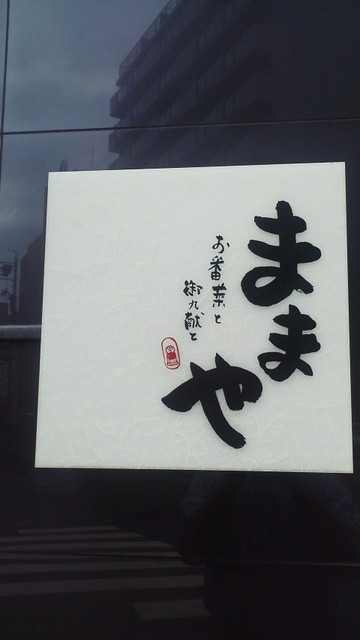 ままや
お番菜と
御九献と